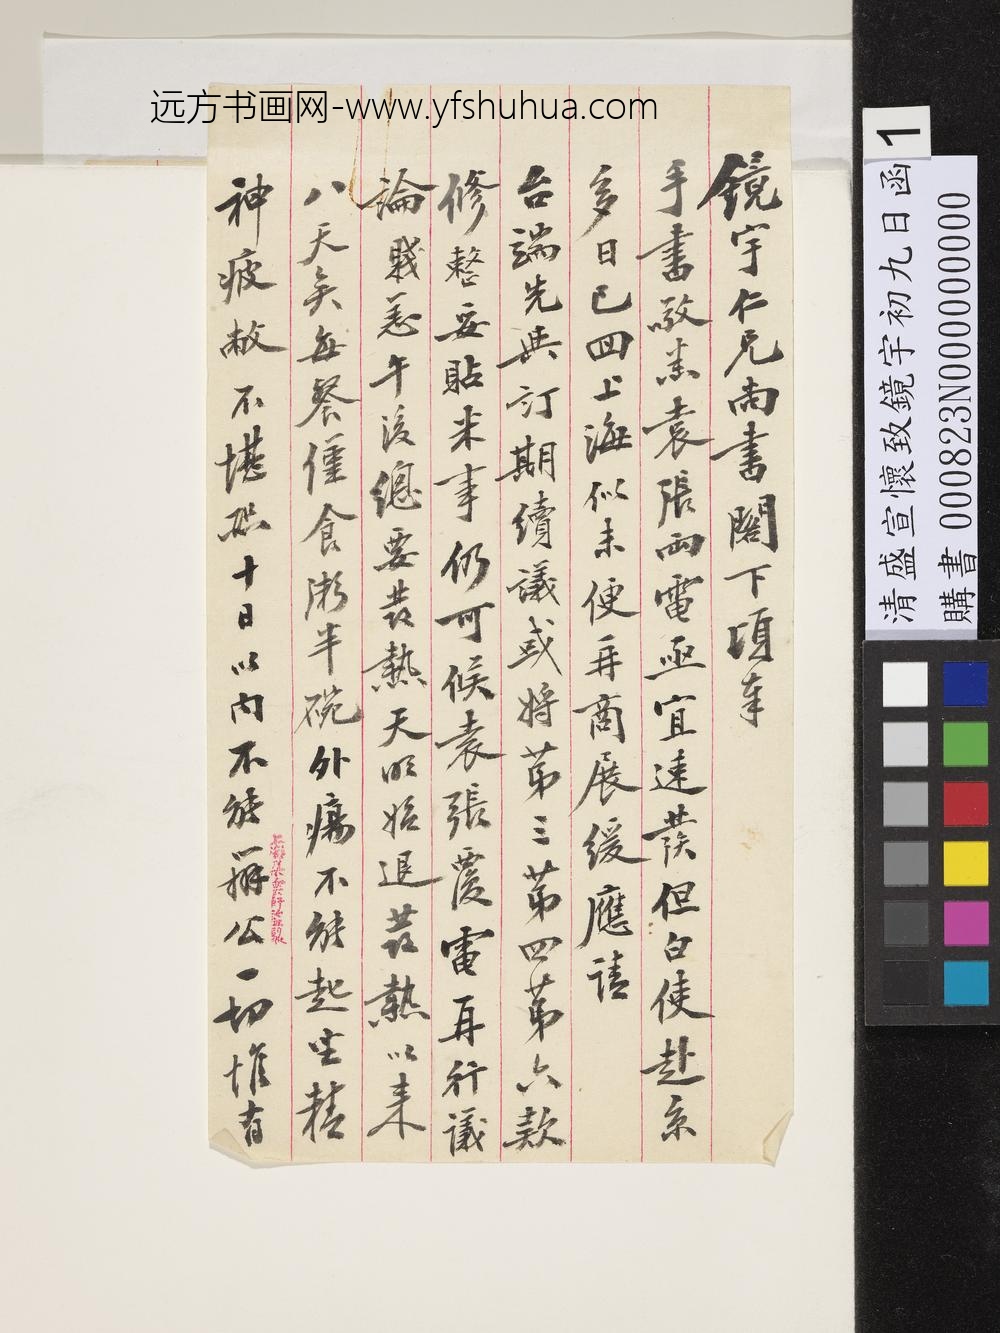 远方书画网-www.yfshuhua.com
鏡宇仁兄尚書閣下頃奉
手書敬悉袁張兩電亟宜速發但白使赴京
多日已回上海似未便再商展緩應請
台端先與訂期續議或將第三第四第六款
修整妥貼米事仍可候袁張覆電再行議
論賤恙午後總要發熱天明始退發熱以來
八天矣每餐僅食粥半碗外瘍不能起坐精
神疲敝不堪恐十日以內不能辦公一切惟有
1
清盛宣懷致鏡宇初九日函
購書 000823N000000000